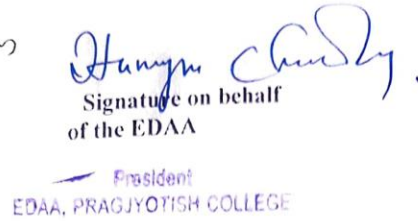 Signature on behalf
of the EDAA
President
EDAA, PRAGJYOTISH COLLEGE